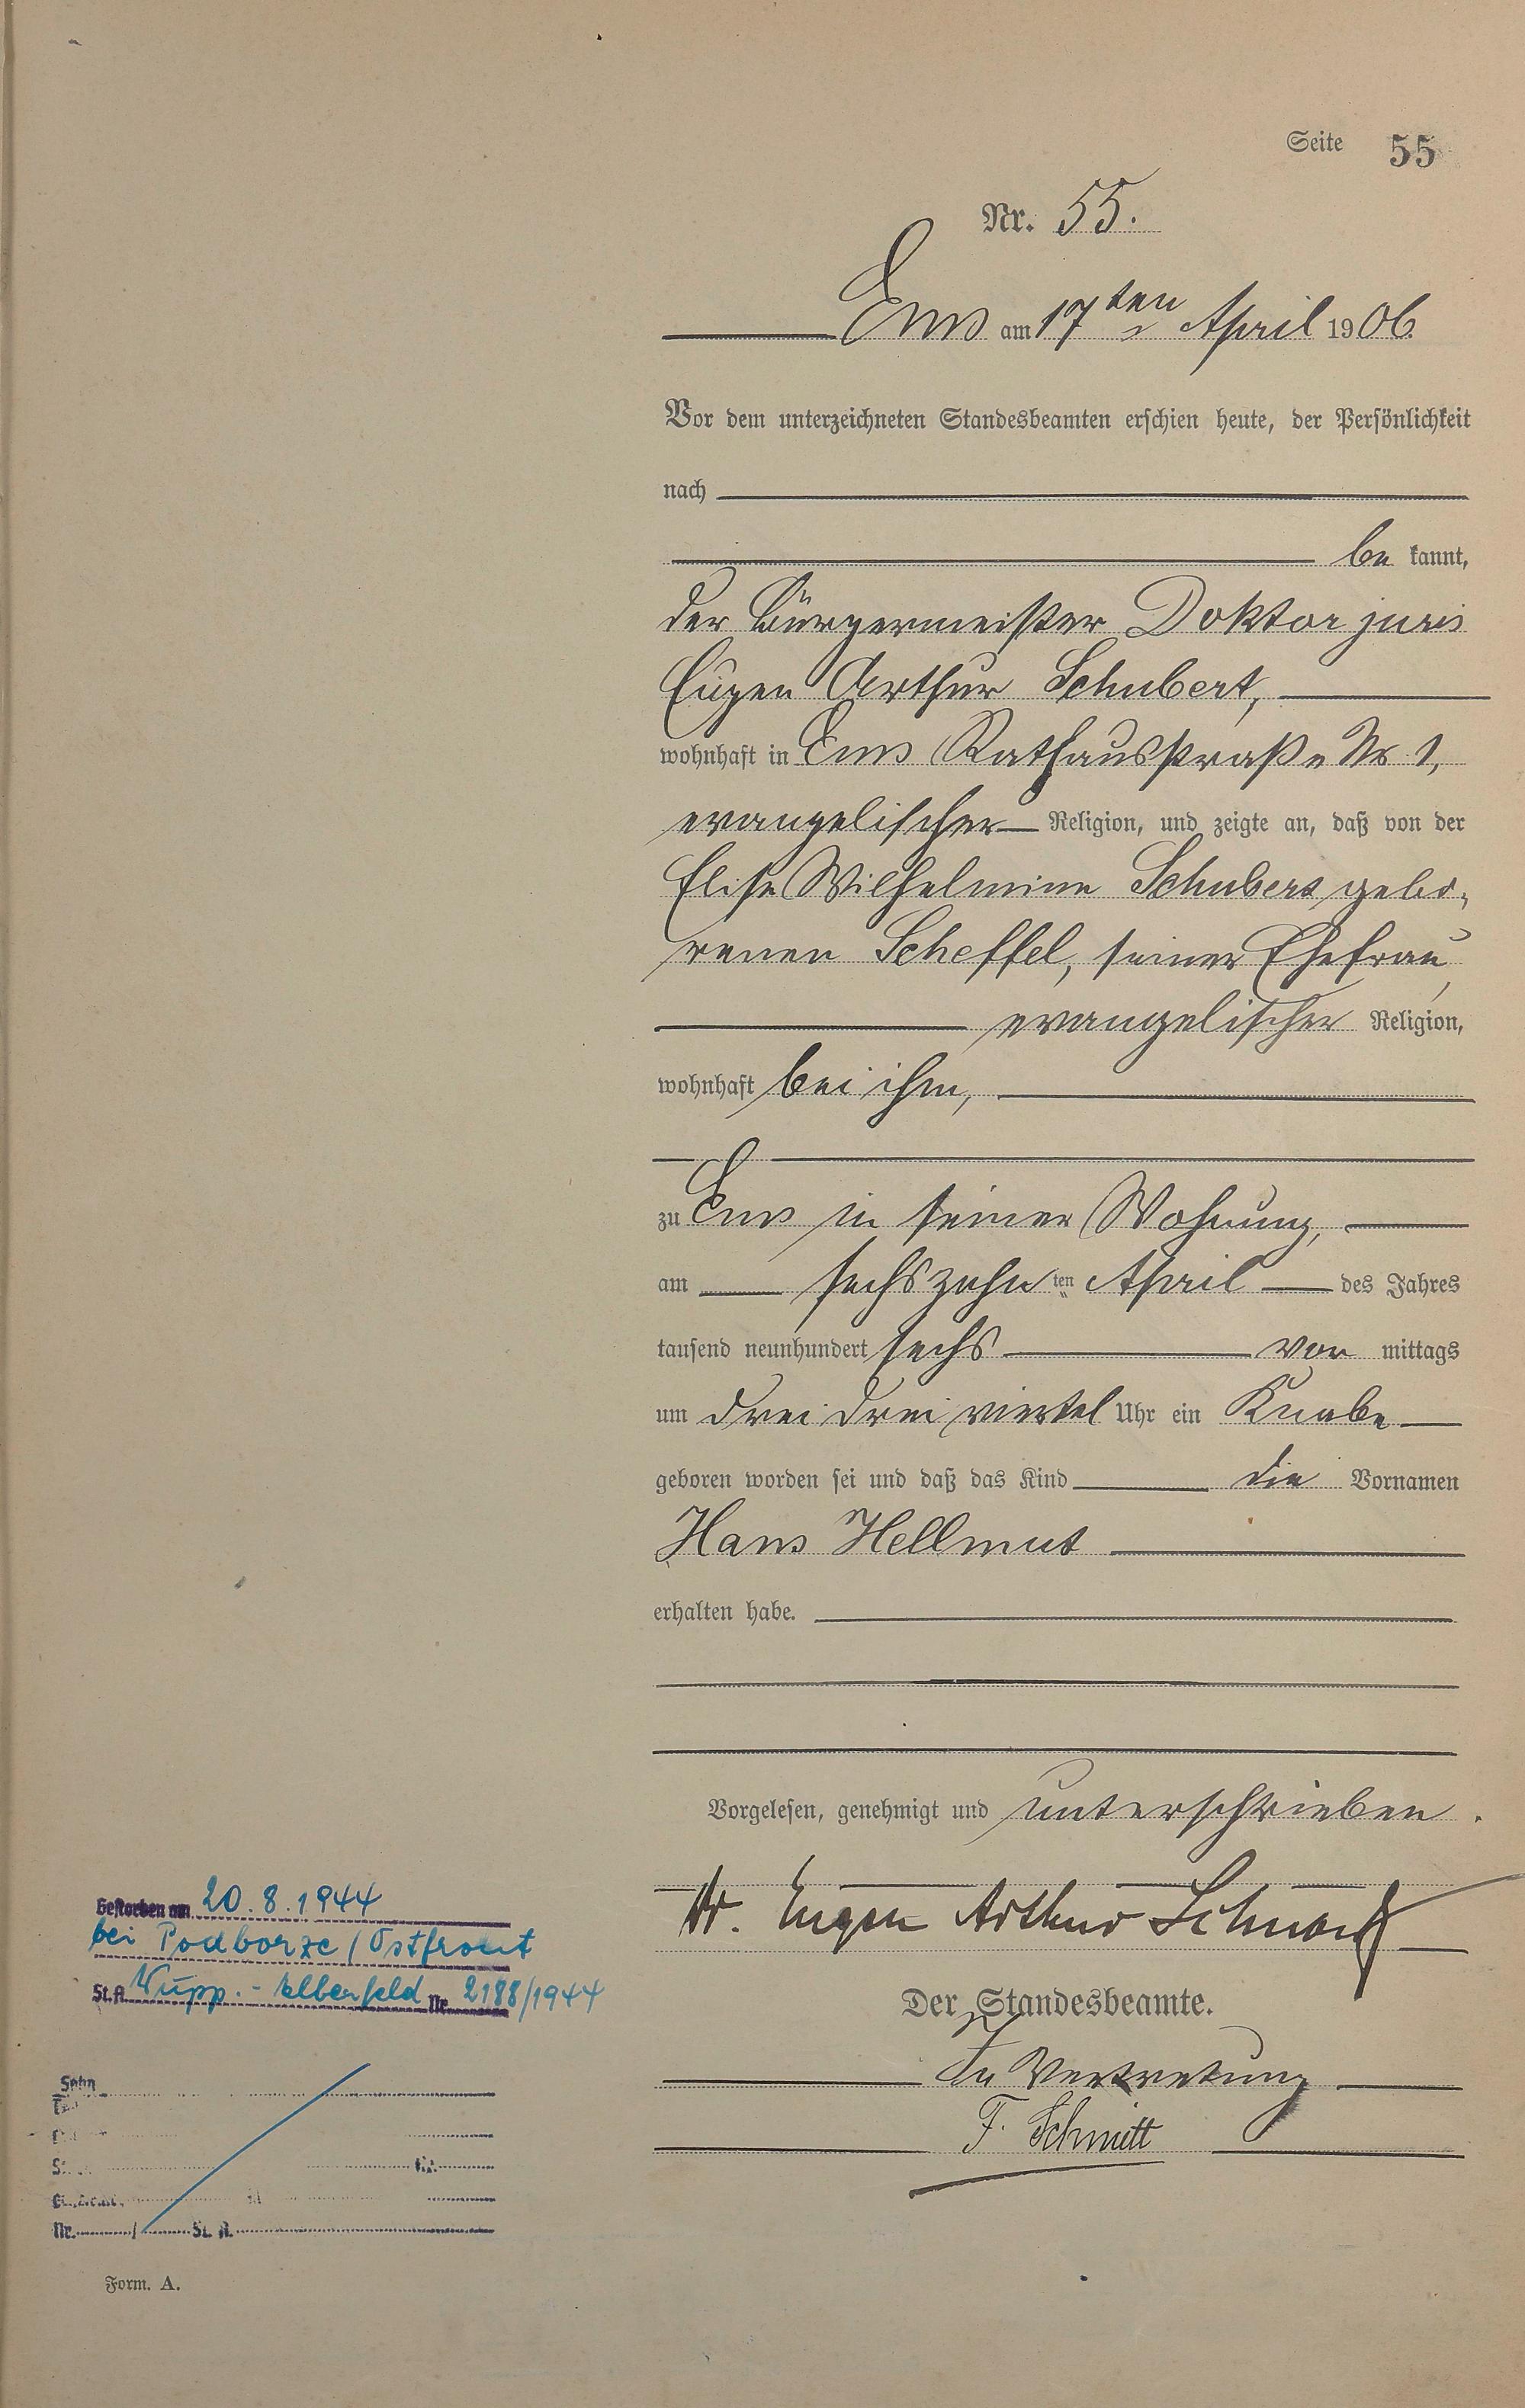 Seite 55
Nr. 55.
Ems am 17ten April 1906.
Vor dem unterzeichneten Standesbeamten erschien heute, der Persönlichkeit
nach
be kannt,
der Bürgermeister Doktor juris
Eugen Arthur Schubert,
wohnhaft in Ems Rathausstraße Nr 1,
evangelischer Religion, und zeigte an, daß von der
Elise Wilhelmine Schubert gebo-
renen Scheffel, seiner Ehefrau,
evangelischer Religion,
wohnhaft bei ihm,
zu Ems in seiner Wohnung,
am sechszehnten April des Jahres
tausend neunhundert sechs vor mittags
um drei drei viertel Uhr ein Knabe
geboren worden sei und daß das Kind die Vornamen
Hans Hellmut
erhalten habe.
Vorgelesen, genehmigt und unterschrieben.
Dr. Eugen Arthur Schubert
Der Standesbeamte.
In Vertretung
F. Schmitt
Gestorben am 20.8.1944
bei Podborze / Ostfront
St.A. Wupp.-Elberfeld Nr. 2188/1944
Sohn
Nr. / St. A.
Form. A.